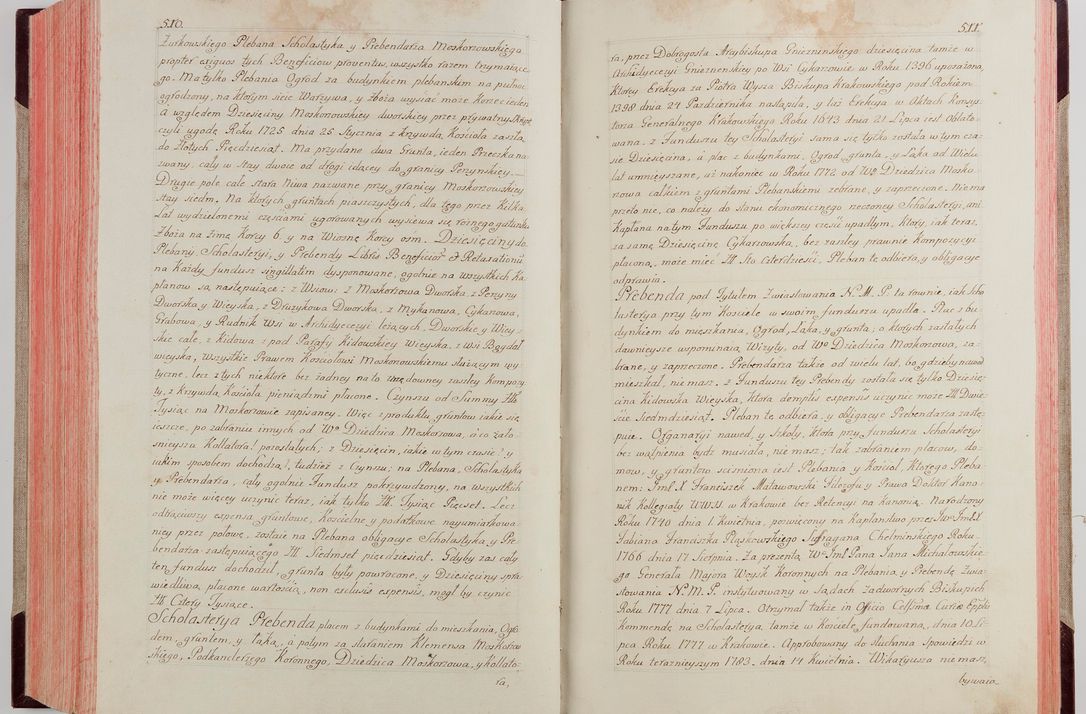 510.
Żurkowskiego Plebana Scholastyka, y Prebendarza Moskorzowskiego
propter exiguos tych Beneficiow proventus, wszystko razem trzymaiące-
go. Ma tylko Plebania Ogrod za budynkiem plebańskim na pułnoc
ogrodzony, na ktorym sieie Warzywa, y zboża wysiać może korzec ieden
A względem Dziesięciny Moskorzowskiey dworskiey przez prywatny
czyli ugodę Roku 1725 dnia 25 Stycznia z krzywdą Kościoła zaszłą
do Złotych Pięcdziesiąt. Ma przydane dwa Grunta, ieden Przeczka na-
zwany, cały w stay dwoie od drogi idącey do granicy Perzynskiey.
Drugie pole całe stara Niwa nazwane przy granicy Moskorzowskiey
stay siedm. Na ktorych gruntach piaszczystych, dla tego przez kilka
Lat wydzielonemi częściami ugorowanych wysiewa się rożnego gatunku
Zboża na Zimę Korcy 6 y na Wiosnę Korcy ośm. Dziesięciny do
Plebany, Scholasteryi, y Prebendy Libris Beneficior. & Retaxationu
na każdy fundusz singillatim dysponowane, ogolnie na wszystkich Ka-
planow są następuiące: z Wsiow: z Moskorzowa Dworska, z Perzyny
Dworska y Wieyska, z Drużykowa Dworska, z Mykanowa, Cykanowa,
Grabowa, y Rudnik Wsi w Archidyecezyi leżących, Dworskie y Wiey-
skie całe, z Kidowa z pod Parafy Kidowskiey Wieyska, z wsi Bogdał
wieyska, Wszystkie Prawem Kościołowi Moskorzowskiemu służącym wy-
tyczne, lecz z tych niektore bez żadney na to urzędowney zaszłey kompozy-
ty, z Krzywdą Kościoła pieniądzmi płacone. Czynszu od Summy Złł.
Tysiąc na Moskorzowie zapisaney. Więc z produktu gruntow iakie się
ieszcze, po zabraniu innych od Wo Dziedzica Moskorzowa, a co żało-
snieysza Kollatora! pozostałych; z Dziesięcin, iakie w tym czasie! y
iakim sposobem dochodzą!, tudzież z Czynszu; na Plebana, Scholastyka
y Prebendarza, cały ogolnie Fundusz pokrzywdzony, na wszystkich
nie może więcey uczynic teraz, iak tylko Złł. Tysiąc Pięcset. Lecz
odtrąciwszy expensa gruntowe, Kościelne y podatkowe nayumiarkowa-
niey przez połowę, zostaie na Plebana obligacye Scholastyka y Pre-
bendarza zastępuiącego Złł Siedmset pięcdziesiat. Gdyby zas cały
ten fundusz dochodził, grunta były powrocone, y Dziesięciny spra-
wiedliwą płacone wartością, non exclusis expensis, mogł by czynic
Złł Cztery Tysiące.
Scholasterya Prebenda placem z budynkami do mieszkania, Ogro-
dem, gruntem, y łąką, a potym za staraniem Klemensa Moskorzo-
wskiego, Podkanclerzego Koronnego, Dziedzica Moskorzowa, y Kollato-
ra,
511.
ra, przez Dobrogosta Arcybiskupa Gnieznienskiego dziesięciną tamże w
Archidyecezyi Gnieznienskiey po Wsi Cykarzowie w Roku 1396 uposażona,
Ktorey Erekcya za Piotra Wysza Biskupa Krakowskiego pod Rokiem
1398 dnia 24 Pazdziernika nastąpiła, y taż Erekcya w Aktach Konsys-
torza Generalnego Krakowskiego Roku 1643 dnia 21 Lipca iest Oblato-
wana. z Funduszu tey Scholasteryi sama się tylko została w tym cza-
sie Dziesięcina, a plac z budynkami, Ogrod, grunta, y Łąka od Wielu
lat umnieyszane, aż nakoniec w Roku 1772 od Wo Dziedzica Mosko-
rzowa całkiem z gruntami Plebanskiemi zebrane, y zaprzeczone. Nie ma
przeto nic, co należy do stanu ekonomicznego rzeczoney Scholasteryi, ani
Kapłana na tym Funduszu po większey części upadłym, ktory, iak teraz,
za samę Dziesięcinę Cykarzowską, bez zaszłey prawnie Kompozycyi
płaconą, może mieć Złł Sto Czterdzieści, Pleban te odbiera, y obligacye
odprawia.
Prebenda pod Tytułem Zwiastowania N. M. P. ta rownie, iak Scho-
lasterya przy tym Kosciele w swoim funduszu upadła. Plac z bu-
dynkiem do mieszkania, Ogrod, Łąka, y grunta; o ktorych zaszłych
dawnieysze wspominaią Wizyty, od Wo Dziedzica Moskorzowa, za-
brane, y zaprzeczone. Prebendarza także od wielu lat, bo gdzieby nawet
mieszkał, nie masz. z Funduszu tey Prebendy została się tylko Dziesię-
cina Kidowska Wieyska, ktora demptis expensis uczynic może Złł Dwie-
ście Siedmdziesiąt. Pleban te odbiera, y obligacye Prebendarza zastę-
puie. Organaryi nawed, y Szkoły, Ktora przy funduszu Scholasteryi
bez wątpienia bydź musiała, nie masz; tak zabraniem placow, do-
mow, y gruntow ściśniona iest Plebania y Kościoł, Ktorego Pleba-
nem: Jml. X. Franciszek Matawowski Filozofii y Prawa Doktor Kano-
nik Kollegiaty WW. SS. w Krakowie bez Retencyi na Kanonią. Narodzony
Roku 1740 dnia 1. Kwietnia, poświęcony na Kapłanstwo przez JW. Jml. X.
Fabiana Franciszka Pląskowskiego Suffragana Chelminskiego Roku
1766 dnia 17 Sierpnia. Za prezentą Wo Jml Pana Jana Michałowskie-
go Generała Majora Woysk Koronnych na Plebanią y Prebendę Zwia-
stowania N. M. P. instytuowany w Sądach Zadwornych Biskupich
Roku 1777 dnia 7 Lipca. Otrzymał także in Officio Celssma Curiæ Epplis
Kommendę na Scholasterya tamże w Kosciele fundowana, dnia 10 Li-
pca Roku 1777 w Krakowie. Approbowany do słuchania Spowiedzi w
Roku terazniеyszym 1783. dnia 14 Kwietnia. Wikaryusza nie masz,
bywaią